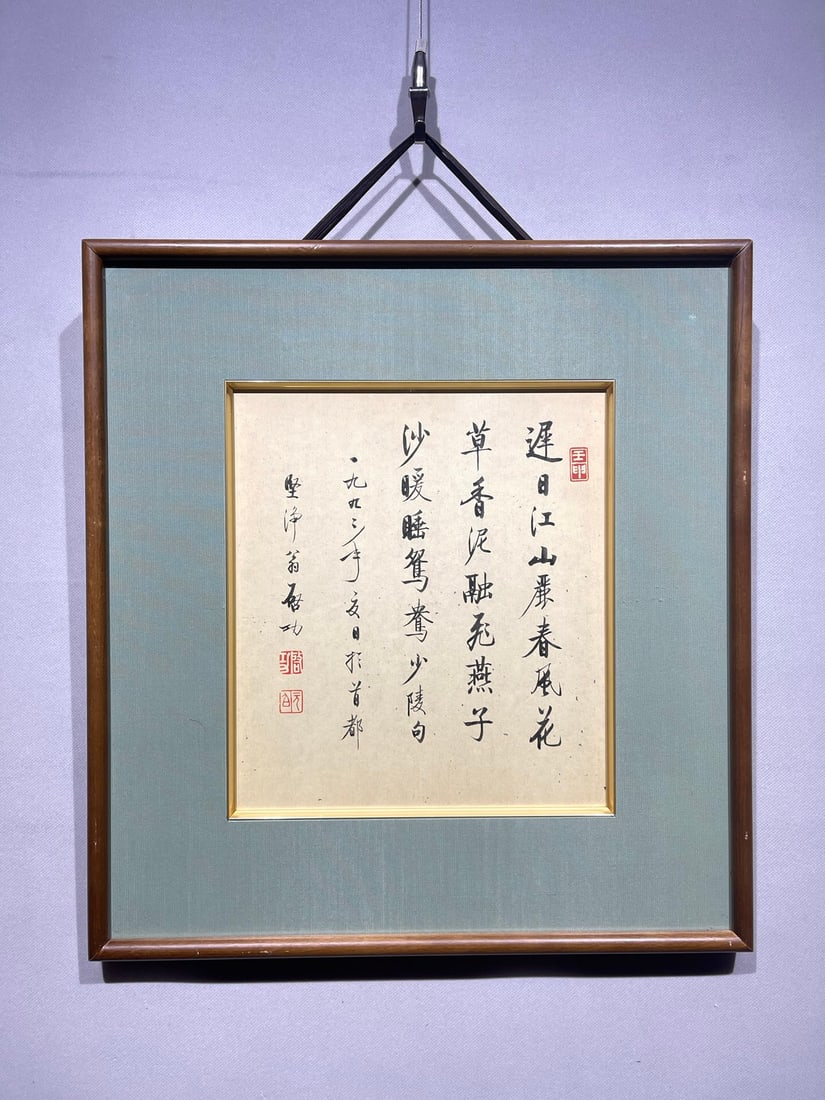 壬申
遲日江山麗春風花
草香泥融飛燕子
沙暖睡鴛鴦少陵句
一九九二年夏日於首都
堅淨翁启功
啓功
元白